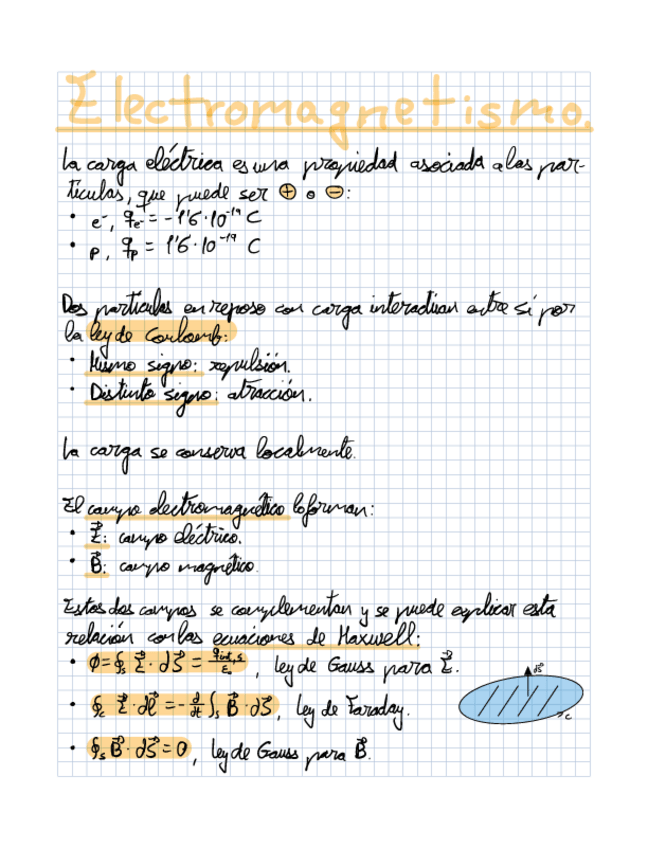 Electromagnetismo.
La carga eléctrica es una propiedad asociada a las par-
tículas, que puede ser ⊕ o ⊖:
• e⁻, qe⁻ = -1'6·10⁻¹⁹ C
• p, qp = 1'6·10⁻¹⁹ C
Dos partículas en reposo con carga interactúan entre sí por
la ley de Coulomb:
• Mismo signo: repulsión.
• Distinto signo: atracción.
La carga se conserva localmente.
El campo electromagnético lo forman:
• E⃗: campo eléctrico.
• B⃗: campo magnético.
Estos dos campos se complementan y se puede explicar esta
relación con las ecuaciones de Maxwell:
• ϕ = ∮s E⃗ · dS⃗ = qint,s/ε₀, ley de Gauss para E⃗.
dS⃗
• ∮c E⃗ · dl⃗ = - d/dt ∫s B⃗ · dS⃗, ley de Faraday.
c
• ∮s B⃗ · dS⃗ = 0, ley de Gauss para B⃗.